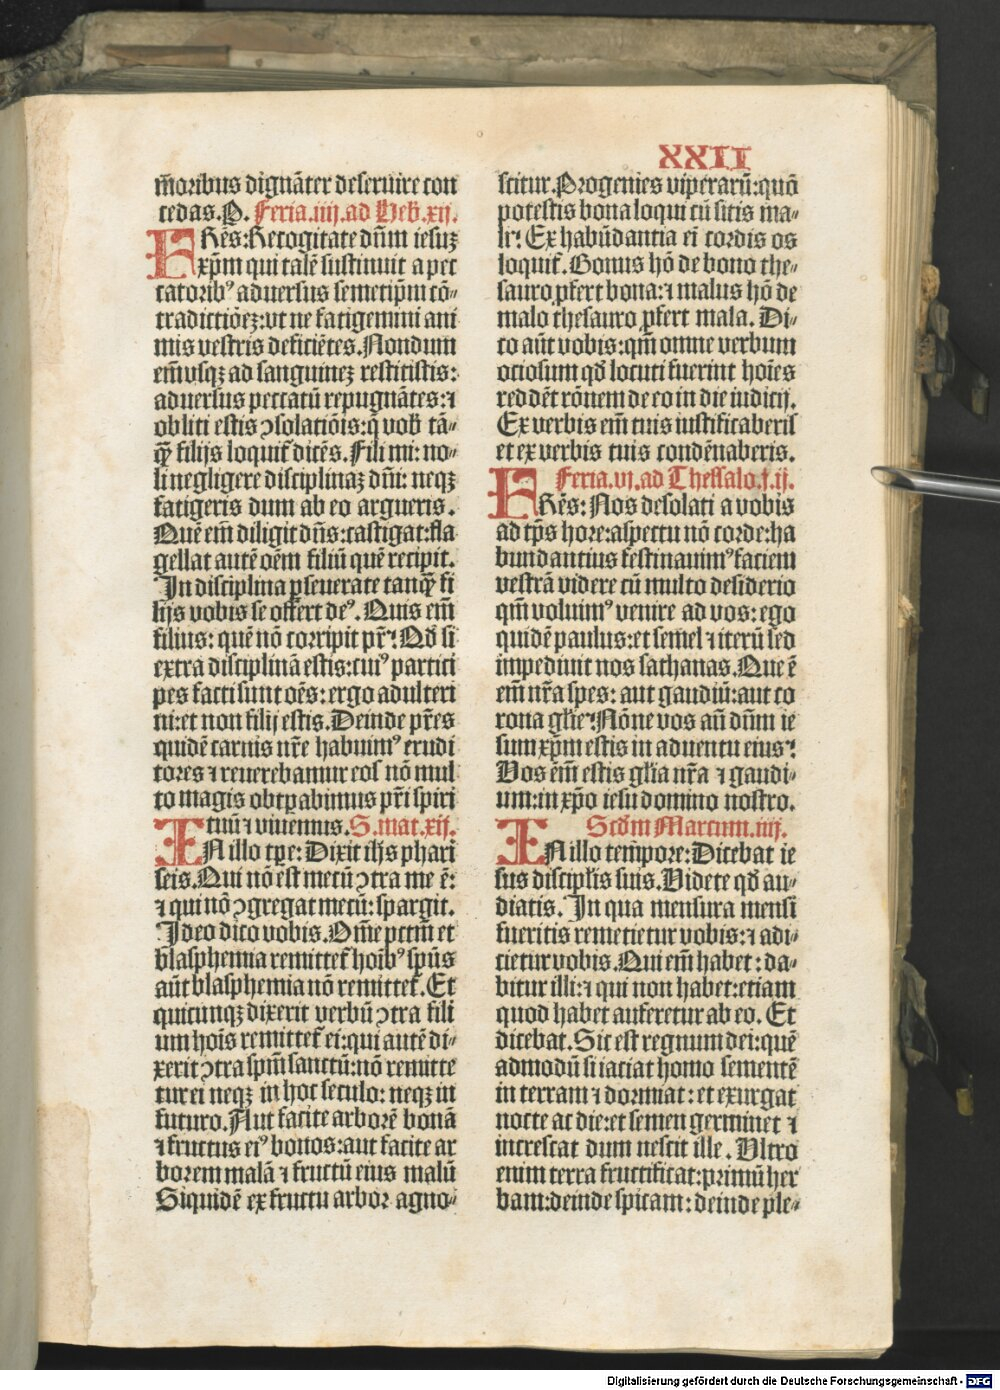 XXII
m̄oribus dignāter deseruire con
cedas. P. Feria.iiij.ad Heb̄.xij.
FRēs: Recogitate dn̄m iesuꝫ
xp̄m qui talē sustinuit a pec
catorib⁹ aduersus semetip̄m cō⸗
tradictiōeꝫ: vt ne fatigemini ani
mis vestris deficiētes. Nondum
em̄ vsqꝫ ad sanguineꝫ restitistis:
aduersus peccatū repugnātes: ⁊
obliti estis ꝯsolatiōis: q̄ vob̄ tā⸗
qꝫ̄ filijs loquit̄ dicēs. Fili mi: no⸗
li negligere disciplinaꝫ dn̄i: neqꝫ
fatigeris dum ab eo argueris.
Quē em̄ diligit dn̄s: castigat: fla
gellat autē oēm filiū quē recipit.
In disciplina ꝑseuerate tanqꝫ̄ fi
lijs vobis se offert de⁹. Quis em̄
filius: quē nō corripit pr̄? Qd̄ si
extra disciplinā estis: cui⁹ partici
pes facti sunt oēs: ergo adulteri
ni: et non filij estis. Deinde pr̄es
quidē carnis nr̄e habuim⁹ erudi
tores ⁊ reuerebamur eos: nō mul
to magis obtꝑabimus pr̄i spiri
tuū ⁊ viuemus. S. mat. xij.
IN illo tꝑe: Dixit ih̄s phari
seis. Qui nō est mecū ꝯtra me ē:
⁊ qui nō ꝯgregat mecū: spargit.
Ideo dico vobis. Om̄e pctm̄ et
blasphemia remittet̄ hoīb⁹ sp̄us
aūt blasphemia nō remittet̄. Et
quicunqꝫ dixerit verbū ꝯtra fili
um hoīs remittet̄ ei: qui autē di⸗
xerit ꝯtra sp̄m sanctū: nō remitte
tur ei neqꝫ in hoc seculo: neqꝫ in
futuro. Aut facite arborē bonā
⁊ fructus ei⁹ bonos: aut facite ar
borem malā ⁊ fructū eius malū
Siquidē ex fructu arbor agno⸗
scitur. Progenies viperarū: quō
potestis bona loqui cū sitis ma⸗
li? Ex habūdantia ei̅ cordis os
loquit̄. Bonus hō de bono the⸗
sauro ꝓfert bona: ⁊ malus hō de
malo thesauro ꝓfert mala. Di⸗
co aūt vobis: qm̄ omne verbum
ociosum qd̄ locuti fuerint hoīes
reddēt rōnem de eo in die iudicij.
Ex verbis em̄ tuis iustificaberis
et ex verbis tuis condēnaberis.
Feria.vj.ad Thessalo.j.ij.
FRēs: Nos desolati a vobis
ad tp̄s hore: aspectu nō corde: ha
bundantius festinauim⁹ faciem
vestrā videre cū multo desiderio
qm̄ voluim⁹ venire ad vos: ego
quidē paulus: et semel ⁊ iterū sed
impediuit nos sathanas. Que ē
em̄ nr̄a spes: aut gaudiū: aut co
rona gl̄ie? Nōne vos aū dn̄m ie
sum xp̄m estis in aduentu eius?
Vos em̄ estis gl̄ia nr̄a ⁊ gaudi⸗
um: in xp̄o iesu domino nostro.
Scd̄m Marcum.iiij.
IN illo tem̄pore: Dicebat ie
sus discipl̄is suis. Videte qd̄ au⸗
diatis. In qua mensura mensi
fueritis remetietur vobis: ⁊ adi⸗
cietur vobis. Qui em̄ habet: da⸗
bitur illi: ⁊ qui non habet: etiam
quod habet auferetur ab eo. Et
dicebat. Sic est regnum dei: quē
admodū si iaciat homo sementē
in terram ⁊ dormiat: et exurgat
nocte ac die: et semen germinet ⁊
increscat dum nescit ille. Vltro
enim terra fructificat: primū her
bam: deinde spicam: deinde ple⸗
Digitalisierung gefördert durch die Deutsche Forschungsgemeinschaft - DFG